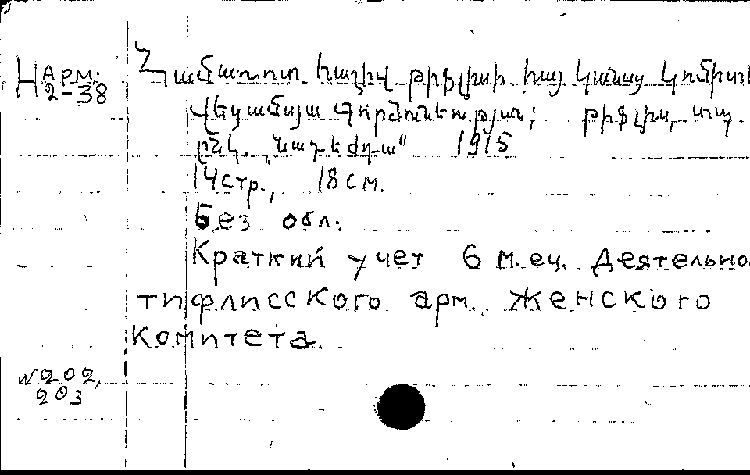 Н Арм.
2-38
Համառոտ հաշիվ թիֆլիսի հայ կանանց կոմիտէի
վեցամսյա գործունեության; թիֆլիս, տպ.
ընկ. "
1915
14 стр., 18 см.
Без обл.
Краткий учет 6 м.ец. Деятельно
тифлисского арм. женского
комитета.
N 202,
203